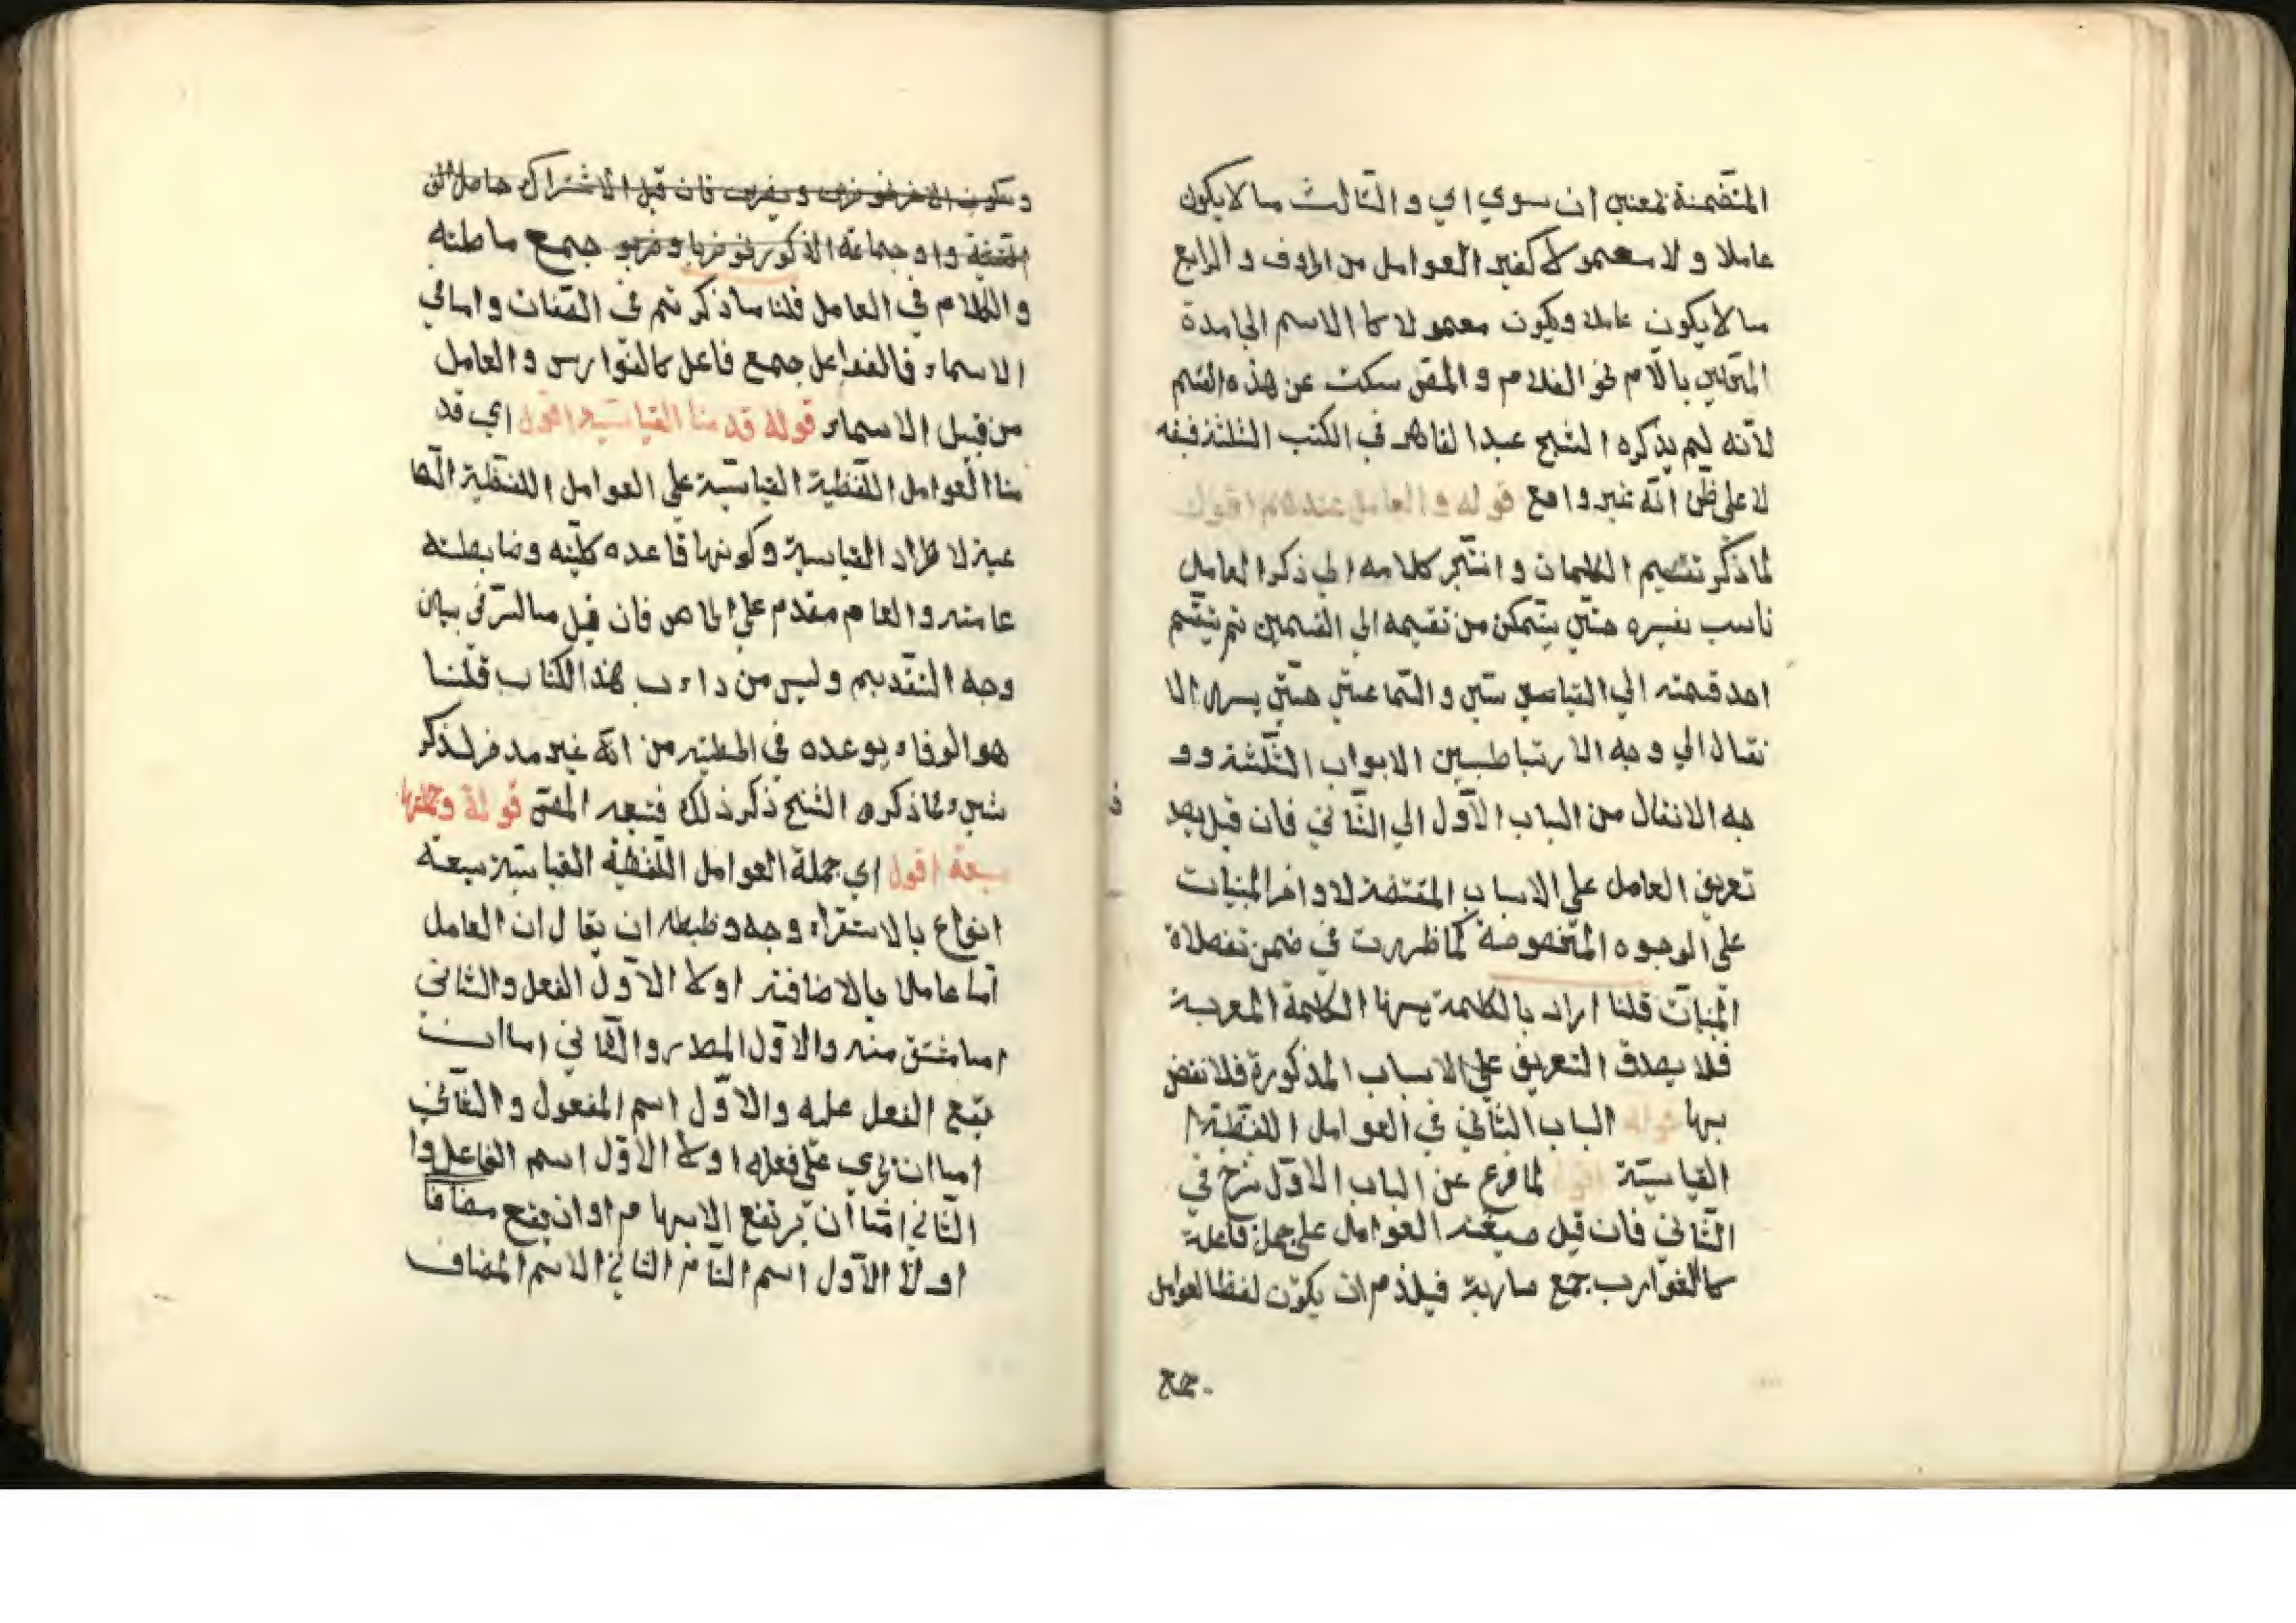 المتضمنة لمعنى ان سوي اي و الثالث ما لا يكون
عاملا و لا معمولا كغير العوامل من الحروف و الرابع
ما لا يكون عاملا ويكون معمولا كا الاسم الجامدة
بالام نحو الغلام و المص سكت عن هذه القسم
لانه لم يذكره الشيخ عبد القاهر في الكتب الثلثة ففه
لا على ظن انه غير واقع قوله و العامل عندهم اقول
لما ذكر تقسيم الكلمات و انتجر كلامه الي ذكر العامل
ناسب تفسيره حتي يتمكن من تقسيمه الي القسمين ثم تقسيم
احد قسمته الي القياسي والسماعي حتي يسري الا
نتقال الي وجه الارتباط بين الابواب الثلثة وو
جه الانتقال من الباب الاول الي الثاني فان قيل يصد
تعريف العامل علي الاسباب المقتضة لاواخر المبنيات
علي الوجوه المخصوصة كما ظهرت في ضمن تفصلاة
المبنيات قلنا اراد بالكلمة يسرنا الكلمة المعربة
فلا يصدق التعريف علي الاسباب المذكورة فلا نقض
بها قوله الباب الثاني في العوامل اللفظية
القياسية اقول لما فرغ عن الباب الاول شرع في
الثاني فان قيل صيغة العوامل علي جمل فاعلة
كالضوارب جمع ضاربة فيلذم ان يكون لفظا لعوامل
جمع
ويكون الاخر نحو ضرب ويضرب فان قيل الاشتراك حاصل
واو جماعة الذكور نحو ضربا وضربو جمع عاطله
والكلام في العامل قلنا ما ذكرتم في الصفات واما في
الاسماء فالفواعل جمع فاعل كالفوارس والعامل
من قبيل الاسماء قوله قدمنا القياسية اقول اي قد
منا العوامل اللفظية القياسية علي العوامل اللفظية السما
عية لا طراد القياسية وكونها قاعده كليه وضابطته
عامته والعام مقدم علي الخاص فان قيل ما السر في بيان
وجه التقديم وليس من داءب هذا الكتاب قلنا
هو الوفاء بوعده في الخطبة من انه غير مدخر لذكر
شيء مما ذكره الشيخ ذكر ذلك فتبعه المص قولة وجملتها
سبعة اقول اي جملة العوامل اللفظية القياسية سبعة
انواع بالاستقراء وجه وضبطه ان يقال ان العامل
اما عاملا بالاضافته اولا الاول الفعل والثاني
اما مشتق منه والاول المصدر والثاني اما ان
يقع الفعل عليه والاول اسم المفعول والثاني
اما ان يجري علي فعله اولا الاول اسم الفاعل وا
الثاني اما ان يرتفع الابهام او ان يقع مضافا
اولا الاول اسم التام الثاني الاسم المضاف